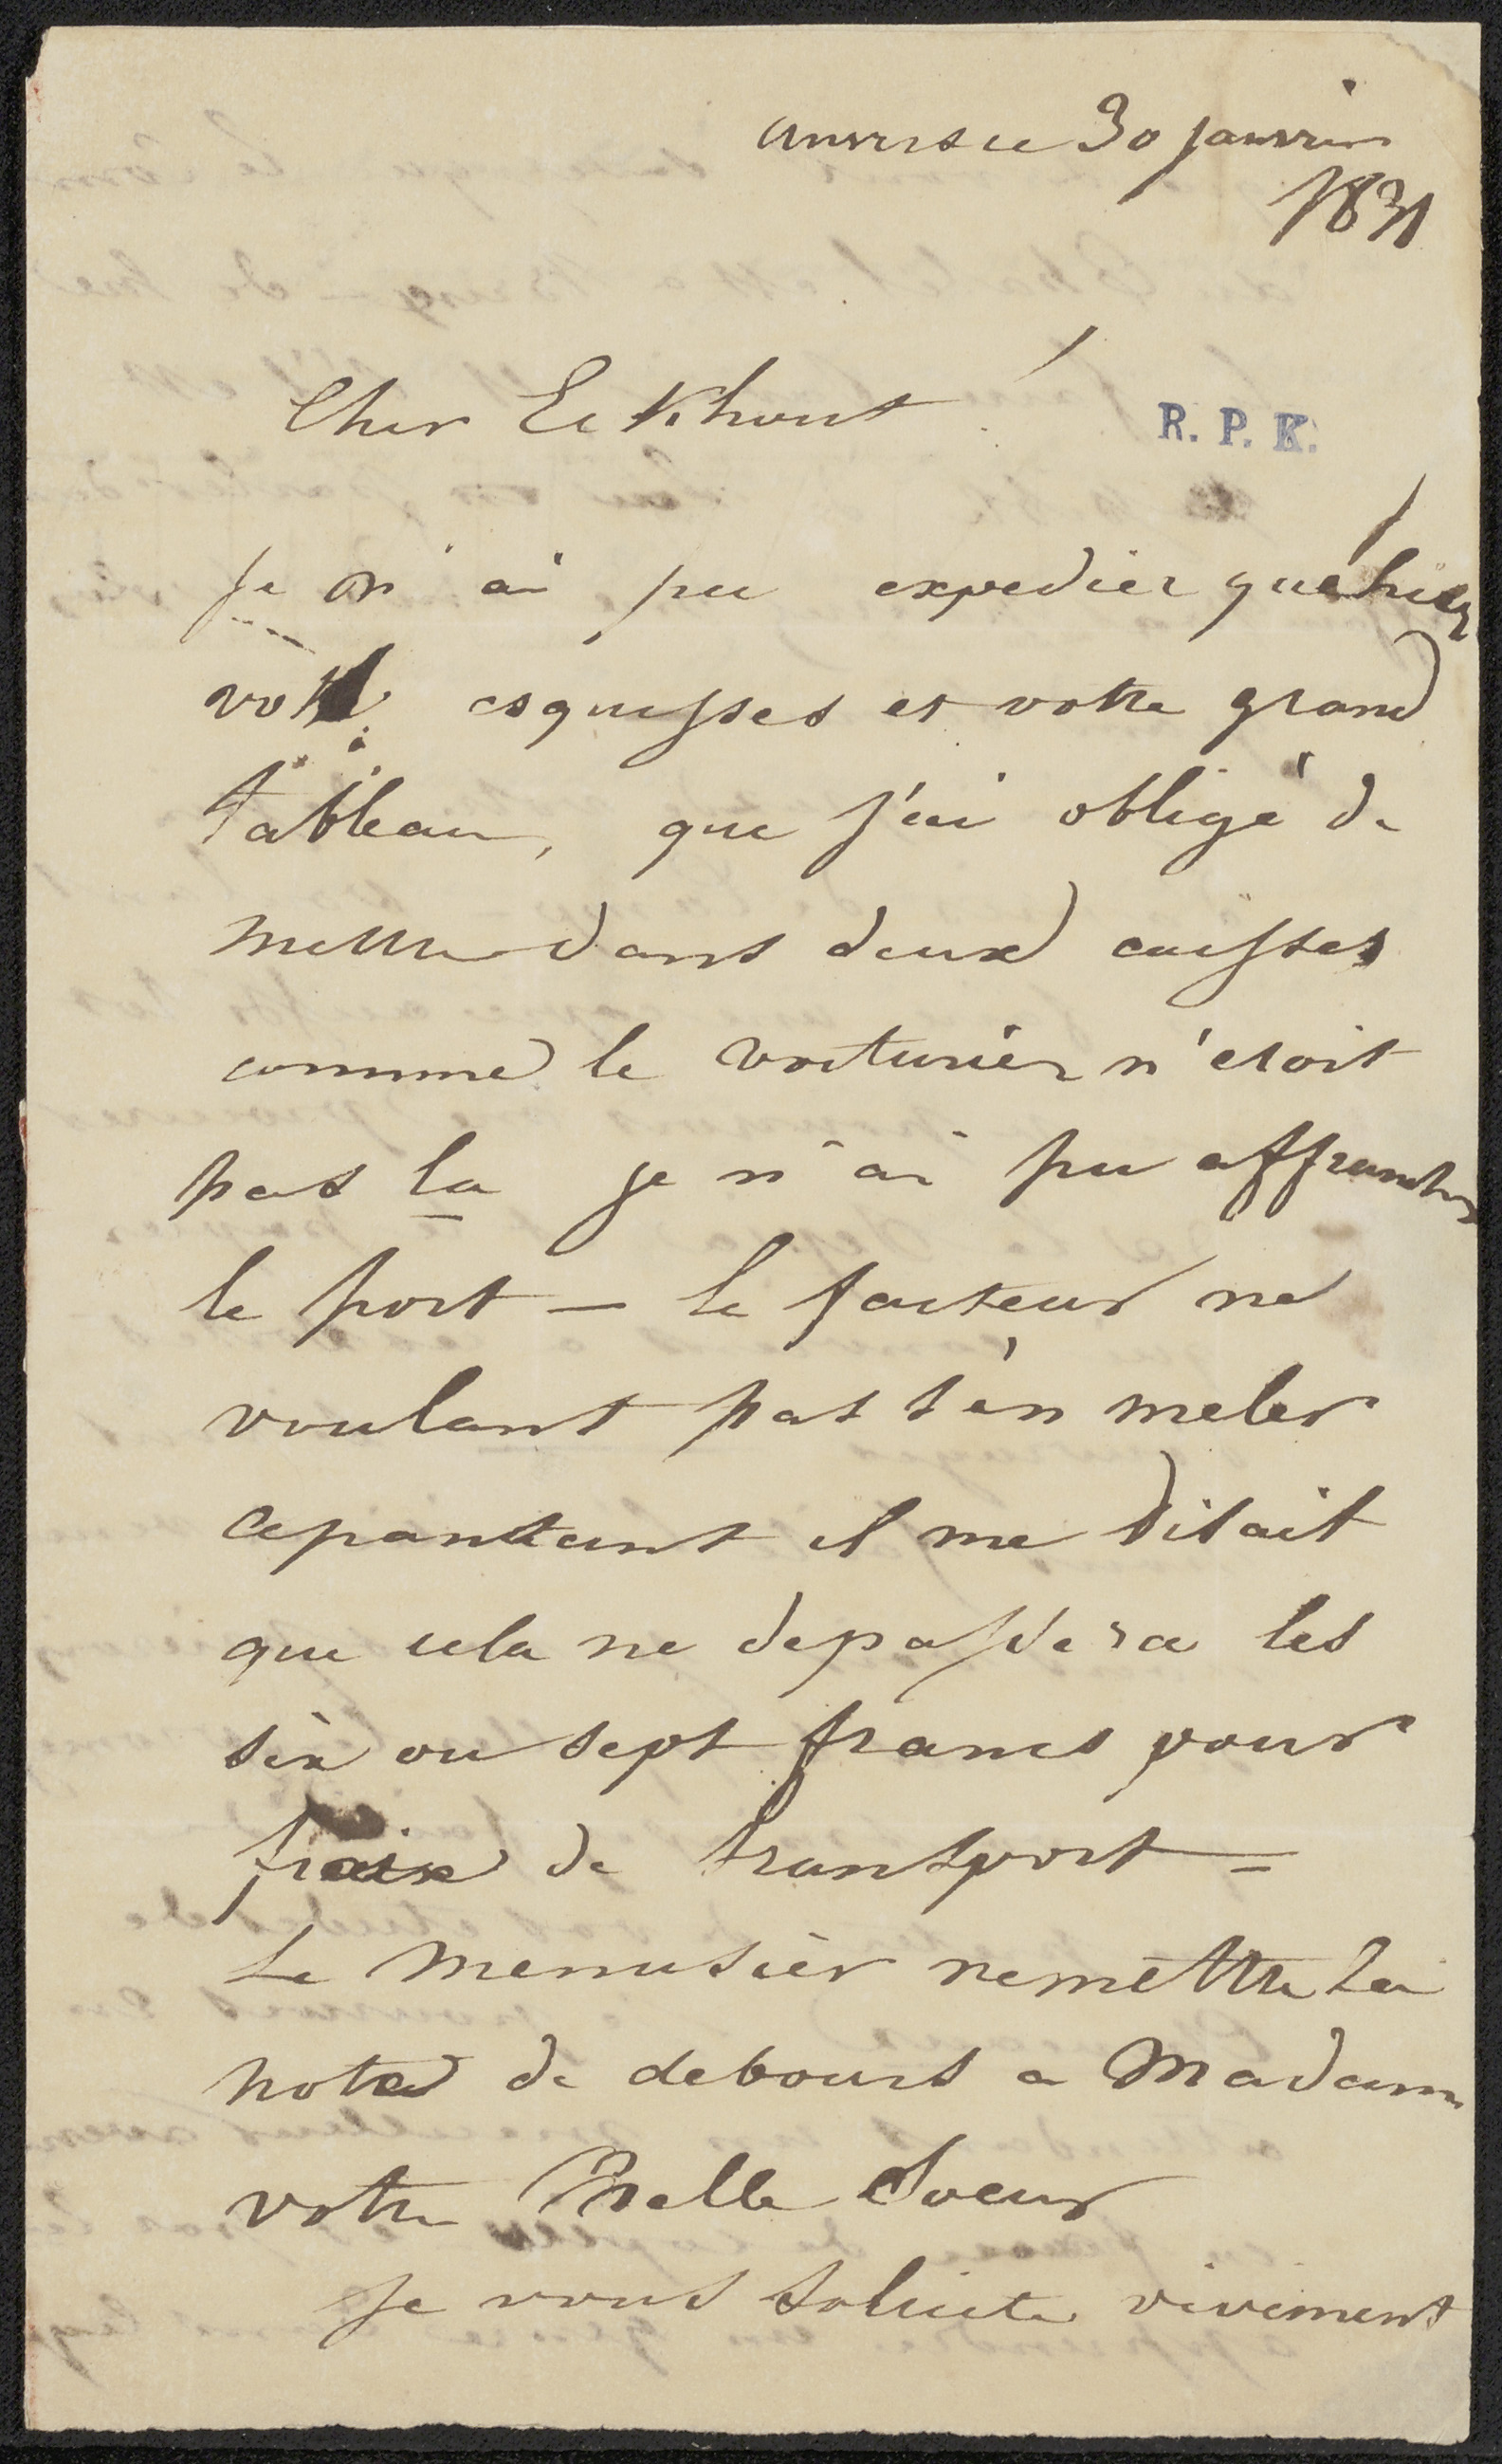 Anvers ce 30 Janvier
1831
Cher Eckhout !
R. P. K.
Je n'ai pu expedier qu'hier
votre esquisses et votre grand
tableau, que j'ai obligé de
mettre dans deux caisses
comme le voiturier n'etoit
pas la je n'ai pu affranchir
le port — le facteur ne
voulant pas s'en meler
cepantant il me disait
que cela ne depassera les
six ou sept francs pour
fraix de transport =
Le menusier remettra la
note de debours a Madame
votre Belle Soeur
Je vous solicite vivement